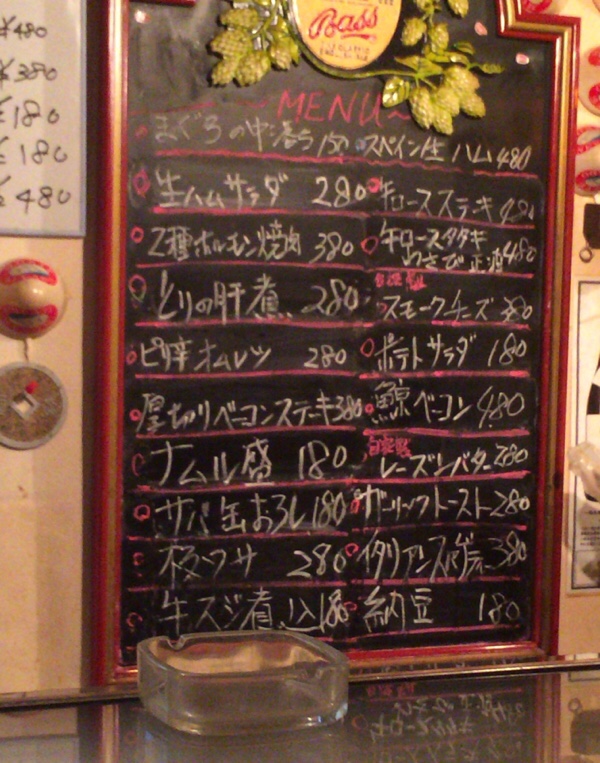 ¥480
¥380
¥180
¥180
¥480
Bass
MENU
まぐろの中落ち 180
スペイン生ハム 480
生ハムサラダ 280
牛ロースステーキ 480
2種ホルモン焼肉 380
牛ロースタタキ
わさび正油 480
とりの肝煮 280
自家製
スモークチーズ 380
ピリ辛オムレツ 280
ポテトサラダ 180
厚切りベーコンステーキ 380
鯨ベーコン 480
ナムル盛 180
自家製
レーズンバター 280
サバ缶おろし 180
ガーリックトースト 280
板ワサ 280
イタリアンスパゲティー 380
牛スジ煮込 180
納豆 180